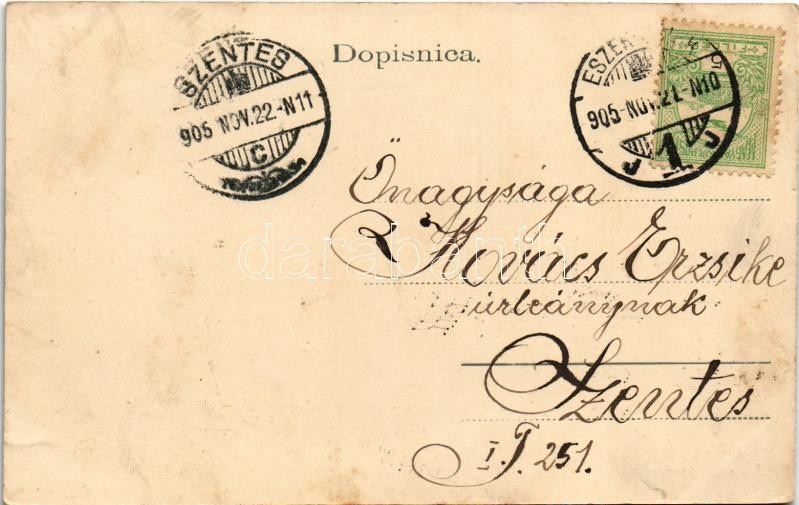 Dopisnica.
SZENTES
905 NOV. 22.-N11
C
905-NOV.21-N10
1
Őnagysága
Kovács Erzsike
úrleánynak
Szentes
I. T. 251.
darabanth